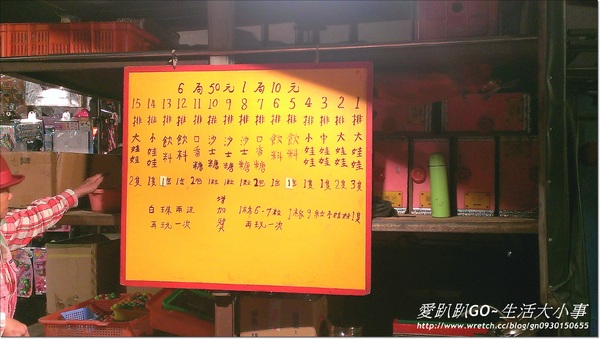 6局50元1局10元
15 14 13 12 11 10 9 8 7 6 5 4 3 2 1
排 排 排 排 排 排 排 排 排 排 排 排 排 排 排
大娃娃 小娃娃 飲料 飲料 口香糖 沙士糖 沙士糖 沙士糖 口香糖 飲料 飲料 小娃娃 中娃娃 大娃娃 大娃娃
2隻 1隻 1 2 1粒 1粒 1粒 2 1 1 1隻 1隻 2隻 3隻
增加獎
白球兩
再玩一次
6-7粒
再玩一次
愛趴趴GO~生活大小事
http://www.wretch.cc/blog/gn0930150655